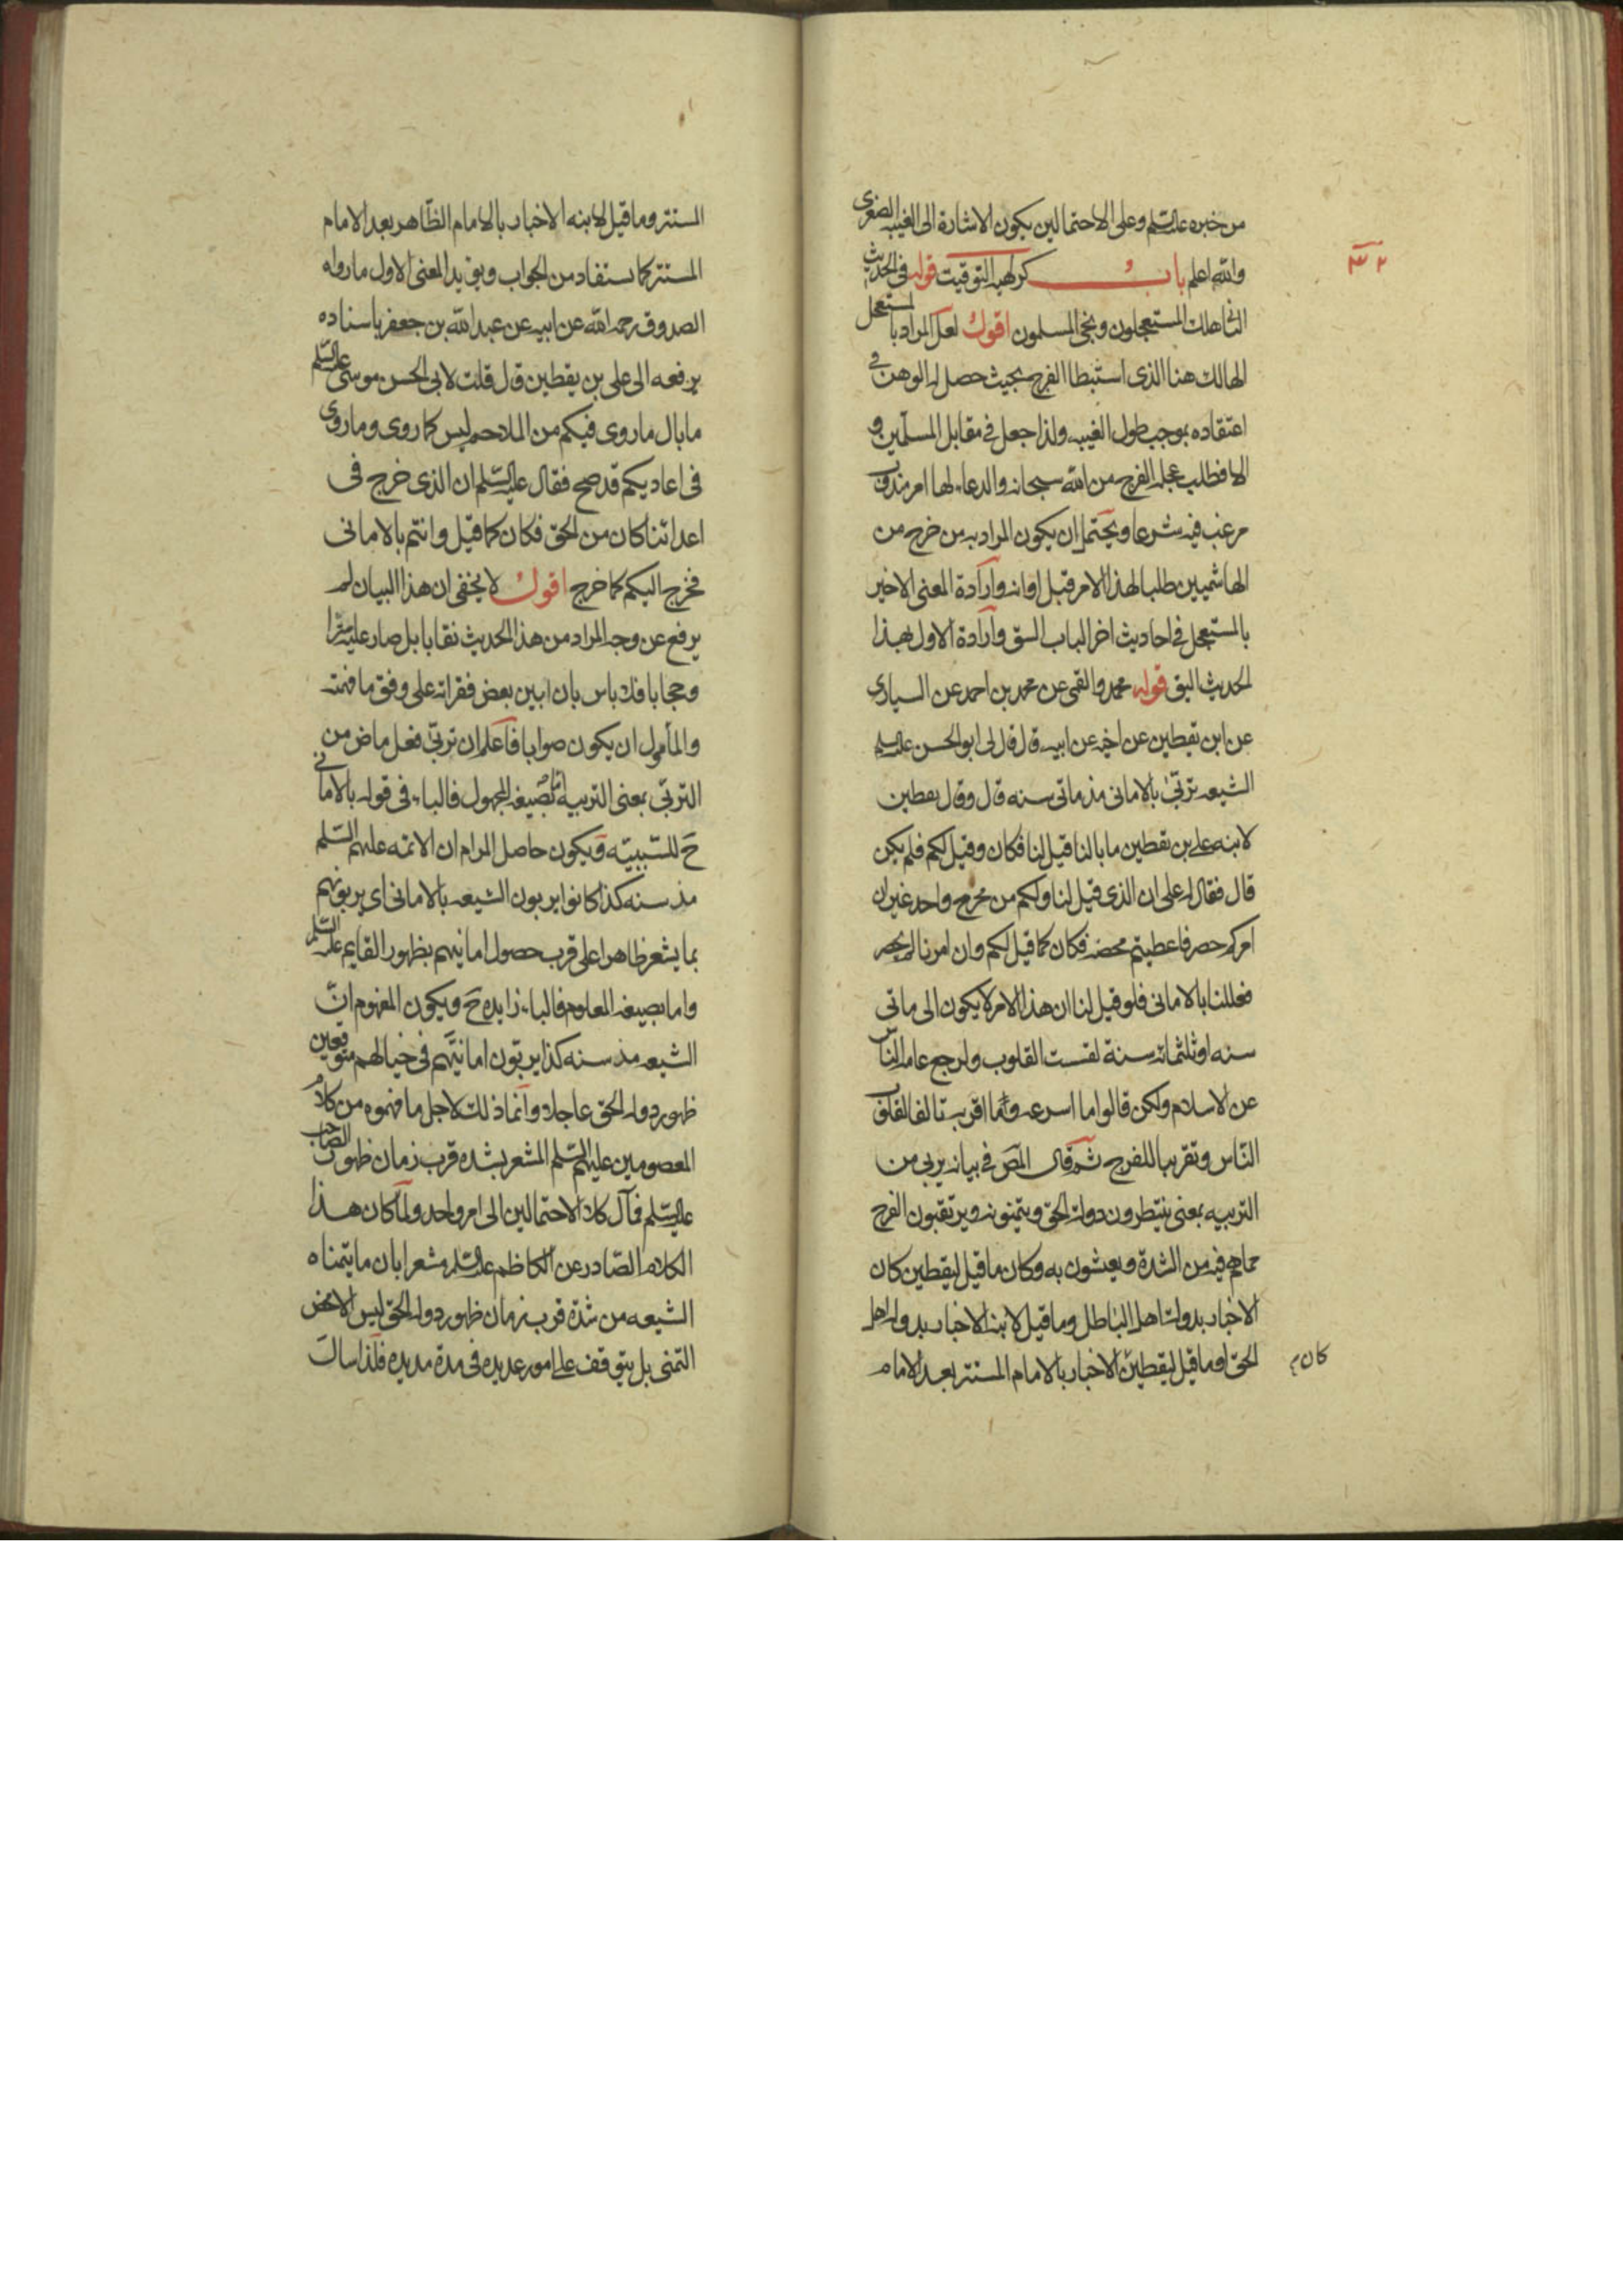 من خبره عليه السلم وعلى الاحتمالين يكون الاشارة الى الغيبه الصغرى
والله اعلم باب كراهيه التوقيت قوله في الحديث
الثانى هلك المستعجلون ونجى المسلمون اقول لعل المراد بالمستعجل
الهالك هنا الذى استبطا الفرج بحيث حصل له الوهن في
اعتقاده بموجب طول الغيبه ولذا جعل في مقابل المسلمين و
الا فطلب عجله الفرج من الله سبحانه والدعاء لها امر مندوب
مرغب فيه شرعا ويحتمل ان يكون المراد به من خرج من
الهاشميين طلبا لهذا الامر قبل اوانه وارادة المعنى الاخير
بالمستعجل في احاديث اخر الباب اليق وارادة الاول بهذا
الحديث اليق قوله محمد والقمى عن محمد بن احمد عن السيارى
عن ابن يقطين عن اخيه عن ابيه قال قال لى ابو الحسن عليه السلم
الشيعه تربى بالامانى مذ مأتى سنه قال وقال يقطين
لابنه على بن يقطين ما بالنا قيل لنا فكان وقيل لكم فلم يكن
قال فقال له على ان الذى قيل لنا ولكم من مخرج واحد غير ان
امركم حضر فاعطيتم محضه فكان كما قيل لكم وان امرنا لم يحضر
فعللنا بالامانى فلو قيل لنا ان هذا الامر لا يكون الى مأتى
سنه او ثلثمائه سنة لقست القلوب ولرجع عامه الناس
عن الاسلام ولكن قالوا ما اسرعه وما اقربه تالفا لقلوب
الناس وتقريبا للفرج ثم قال المص في بيانه يربى من
التربيه بمعنى ينتظرون دولة الحق ويتمنونه ويرتقبون الفرج
مما هم فيه من الشدة ويعيشون به وكان ما قيل ليقطين كان
الاخبار بدولة اهل الباطل وما قيل لابنه الاخبار بدوله اهل
الحق او ما قيل ليقطين الاخبار بالامام المستتر بعد الامام
كان
٣٢
المستتر وما قيل لابنه الاخبار بالامام الظاهر بعد الامام
المستتر كما يستفاد من الجواب ويؤيد المعنى الاول ما رواه
الصدوق رحمه الله عن ابيه عن عبد الله بن جعفر باسناده
يرفعه الى على بن يقطين قال قلت لابى الحسن موسى عليه السلم
ما بال ما روى فيكم من الملاحم ليس كما روى وما روى
فى اعاديكم قد صح فقال عليه السلم ان الذى خرج فى
اعدائنا كان من الحق فكان كما قيل وانتم بالامانى
فخرج اليكم كما خرج اقول لا يخفى ان هذا البيان لم
يرفع عن وجه المراد من هذا الحديث نقابا بل صار عليه سترا
وحجابا فلا باس بان ابين بعض فقراته على وفق ما فهمته
والمأمول ان يكون صوابا فاعلم ان تربى فعل ماض من
التربى بمعنى التربيه اما بصيغه المجهول فالباء فى قوله بالامانى
ح للسببيه ويكون حاصل المرام ان الائمه عليهم السلم
مذ سنه كذا كانوا يربون الشيعه بالامانى اى يربونهم
بما يشعر ظاهرا على قرب حصول امانيهم بظهور القايم عليه السلم
واما بصيغه المعلوم فالباء زايده ح ويكون المفهوم ان
الشيعه مذ سنه كذا يربون امانيهم فى خيالهم متوقعين
ظهور دوله الحق عاجلا وانما ذلك لاجل ما فهموه من كلام
المعصومين عليهم السلم المشعر بشده قرب زمان ظهور الصاحب
عليه السلم فمآل كلا الاحتمالين الى امر واحد ولما كان هذا
الكلام الصادر عن الكاظم عليه السلم مشعرا بان ما يتمناه
الشيعه من شدة قرب زمان ظهور دوله الحق ليس الا محض
التمنى بل يتوقف على امور عديده فى مدة مديده فلذا سال